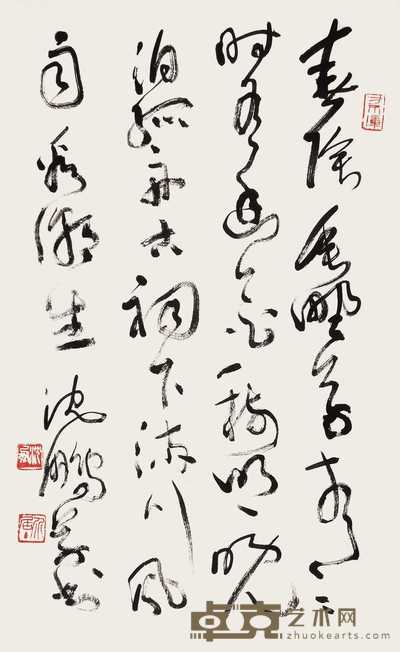 春陰垂野草青青
時有幽花一樹明晚
泊孤舟古祠下滿川風
雨看潮生 沈鵬草書
卓克艺术网
zhuokearts.com